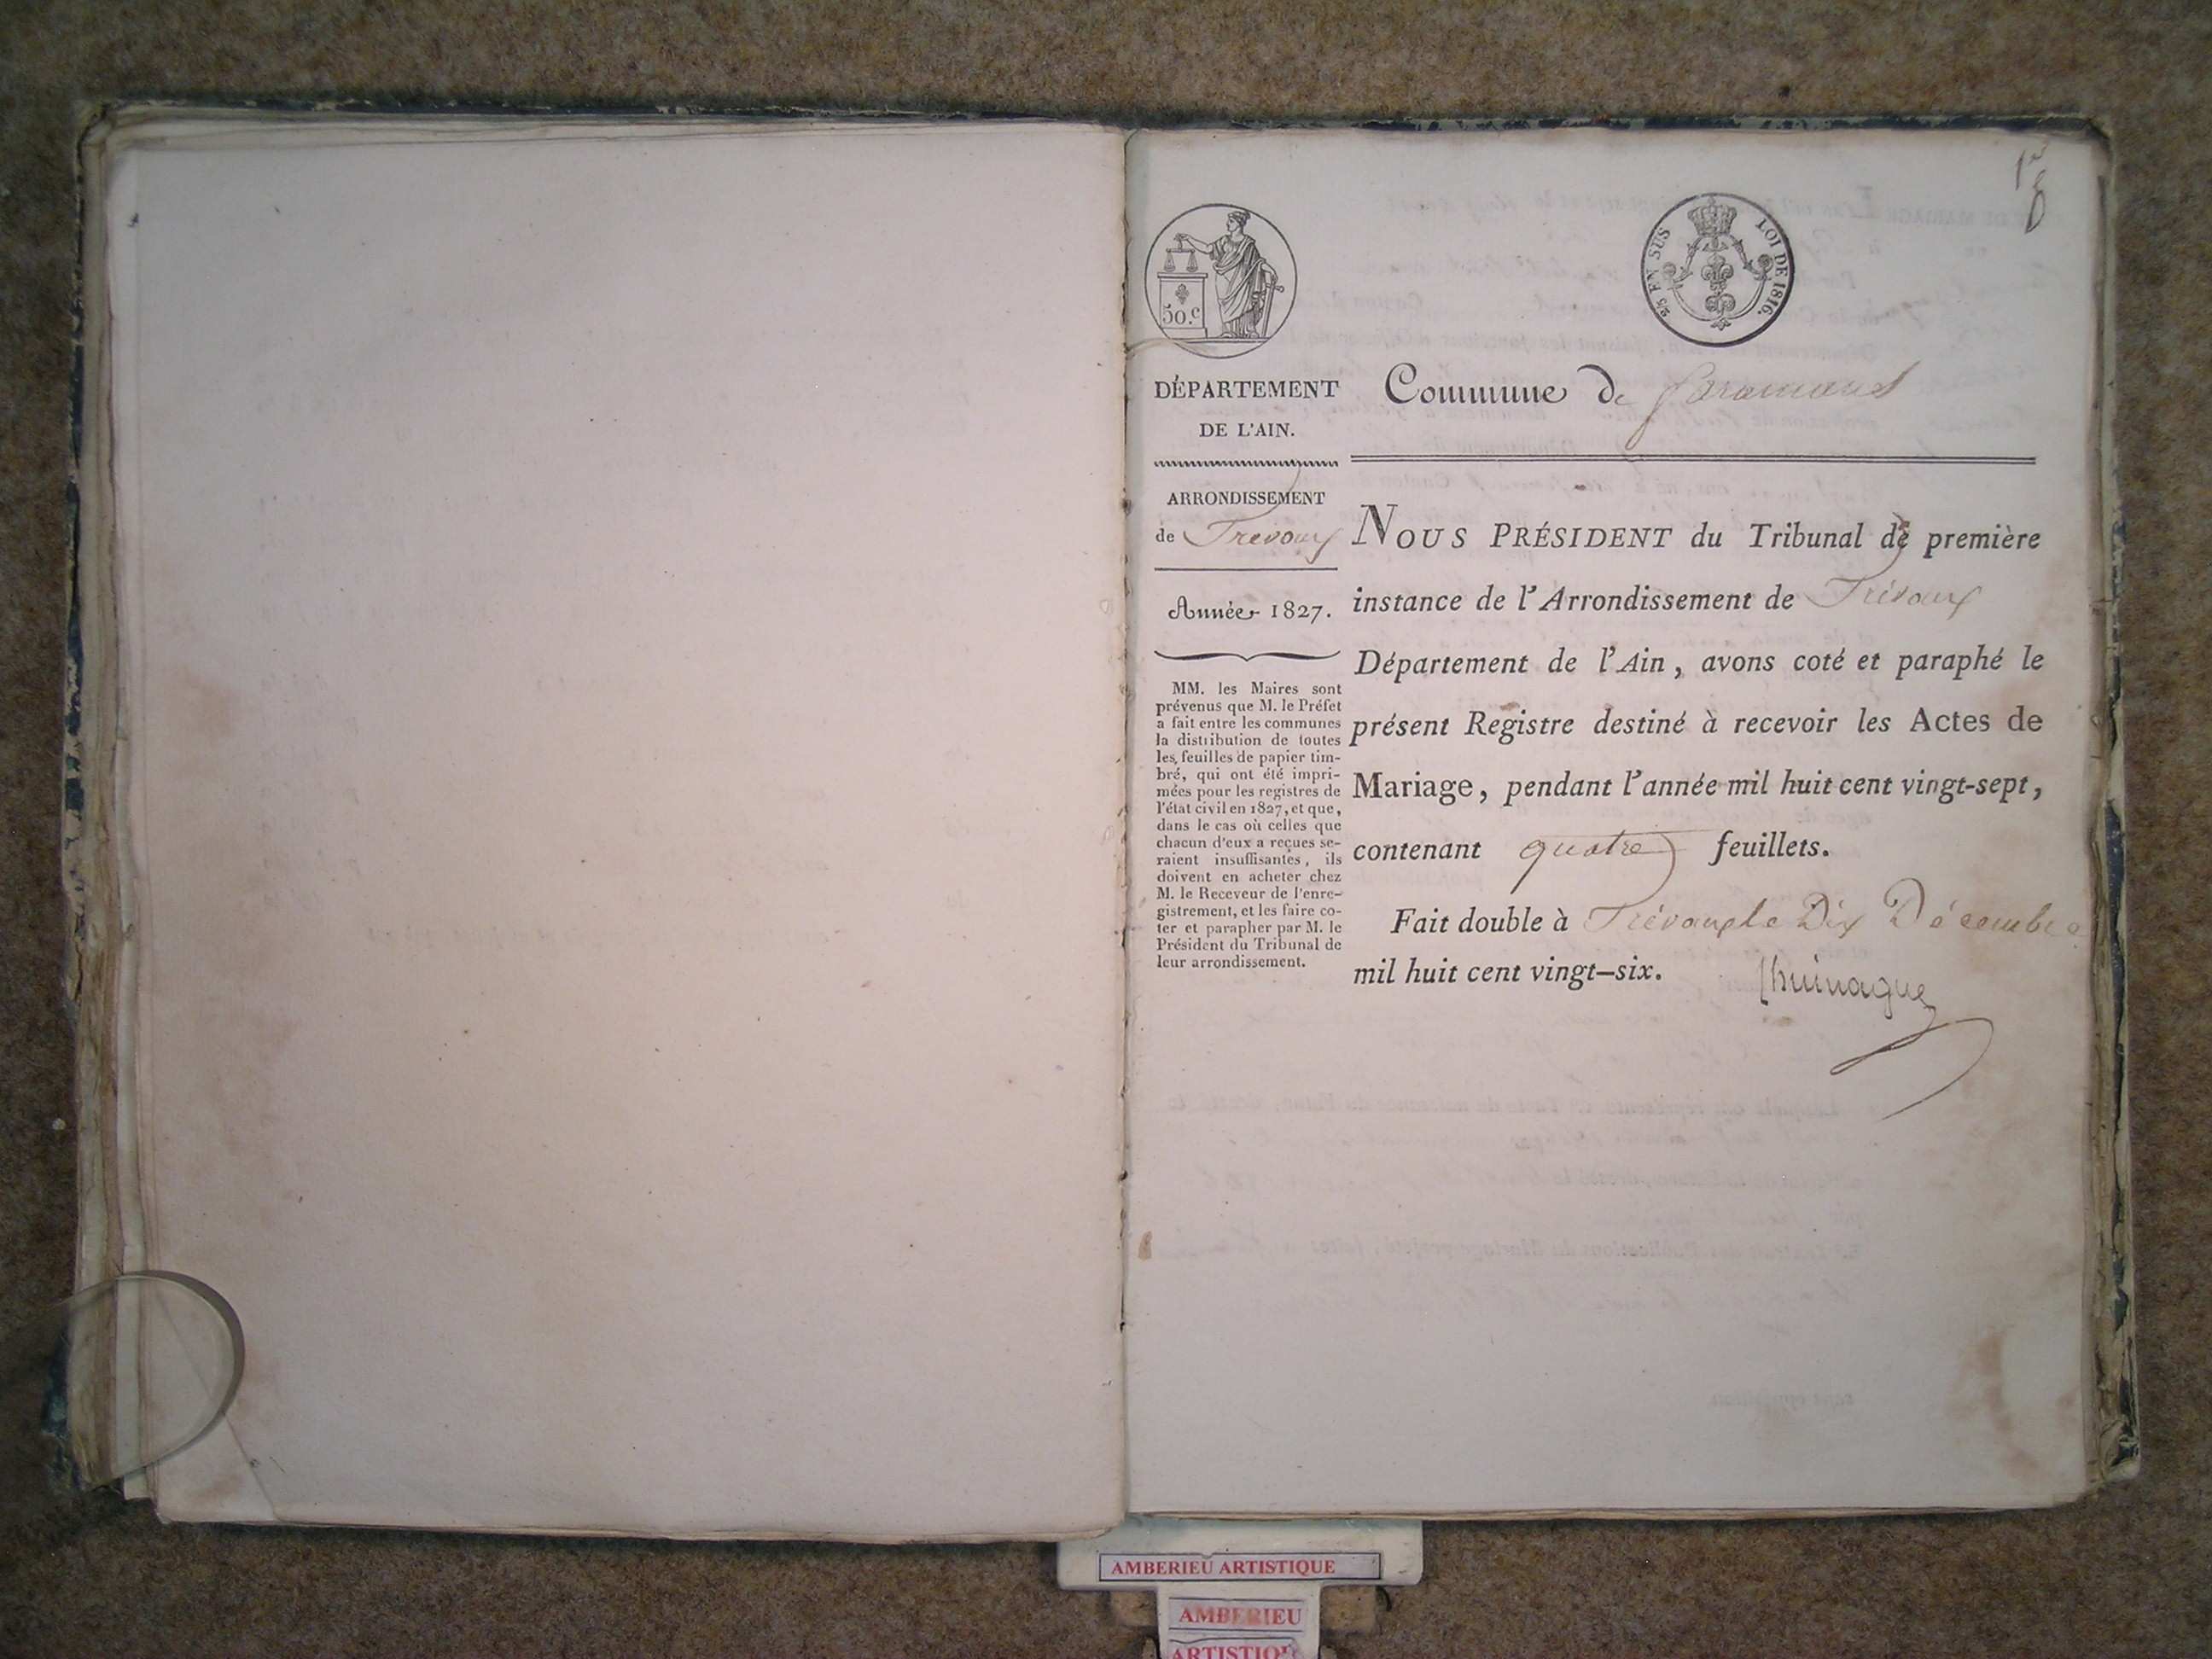 1er
50.c
2/5 EN SUS
LOI DE 1816.
DÉPARTEMENT
DE L'AIN.
ARRONDISSEMENT
de Trévoux
Année 1827.
MM. les Maires sont
prévenus que M. le Préfet
a fait entre les communes
la distribution de toutes
les feuilles de papier tim-
bré, qui ont été impri-
mées pour les registres de
l'état civil en 1827, et que,
dans le cas où celles que
chacun d'eux a reçues se-
raient insuffisantes, ils
doivent en acheter chez
M. le Receveur de l'enre-
gistrement, et les faire co-
ter et parapher par M. le
Président du Tribunal de
leur arrondissement.
Commune de
NOUS PRÉSIDENT du Tribunal de première
instance de l'Arrondissement de Trévoux
Département de l'Ain, avons coté et paraphé le
présent Registre destiné à recevoir les Actes de
Mariage, pendant l'année mil huit cent vingt-sept,
contenant quatre feuillets.
Fait double à Trévoux le Dix Décembre
mil huit cent vingt-six.
AMBERIEU ARTISTIQUE
AMBERIEU
ARTISTIQUE